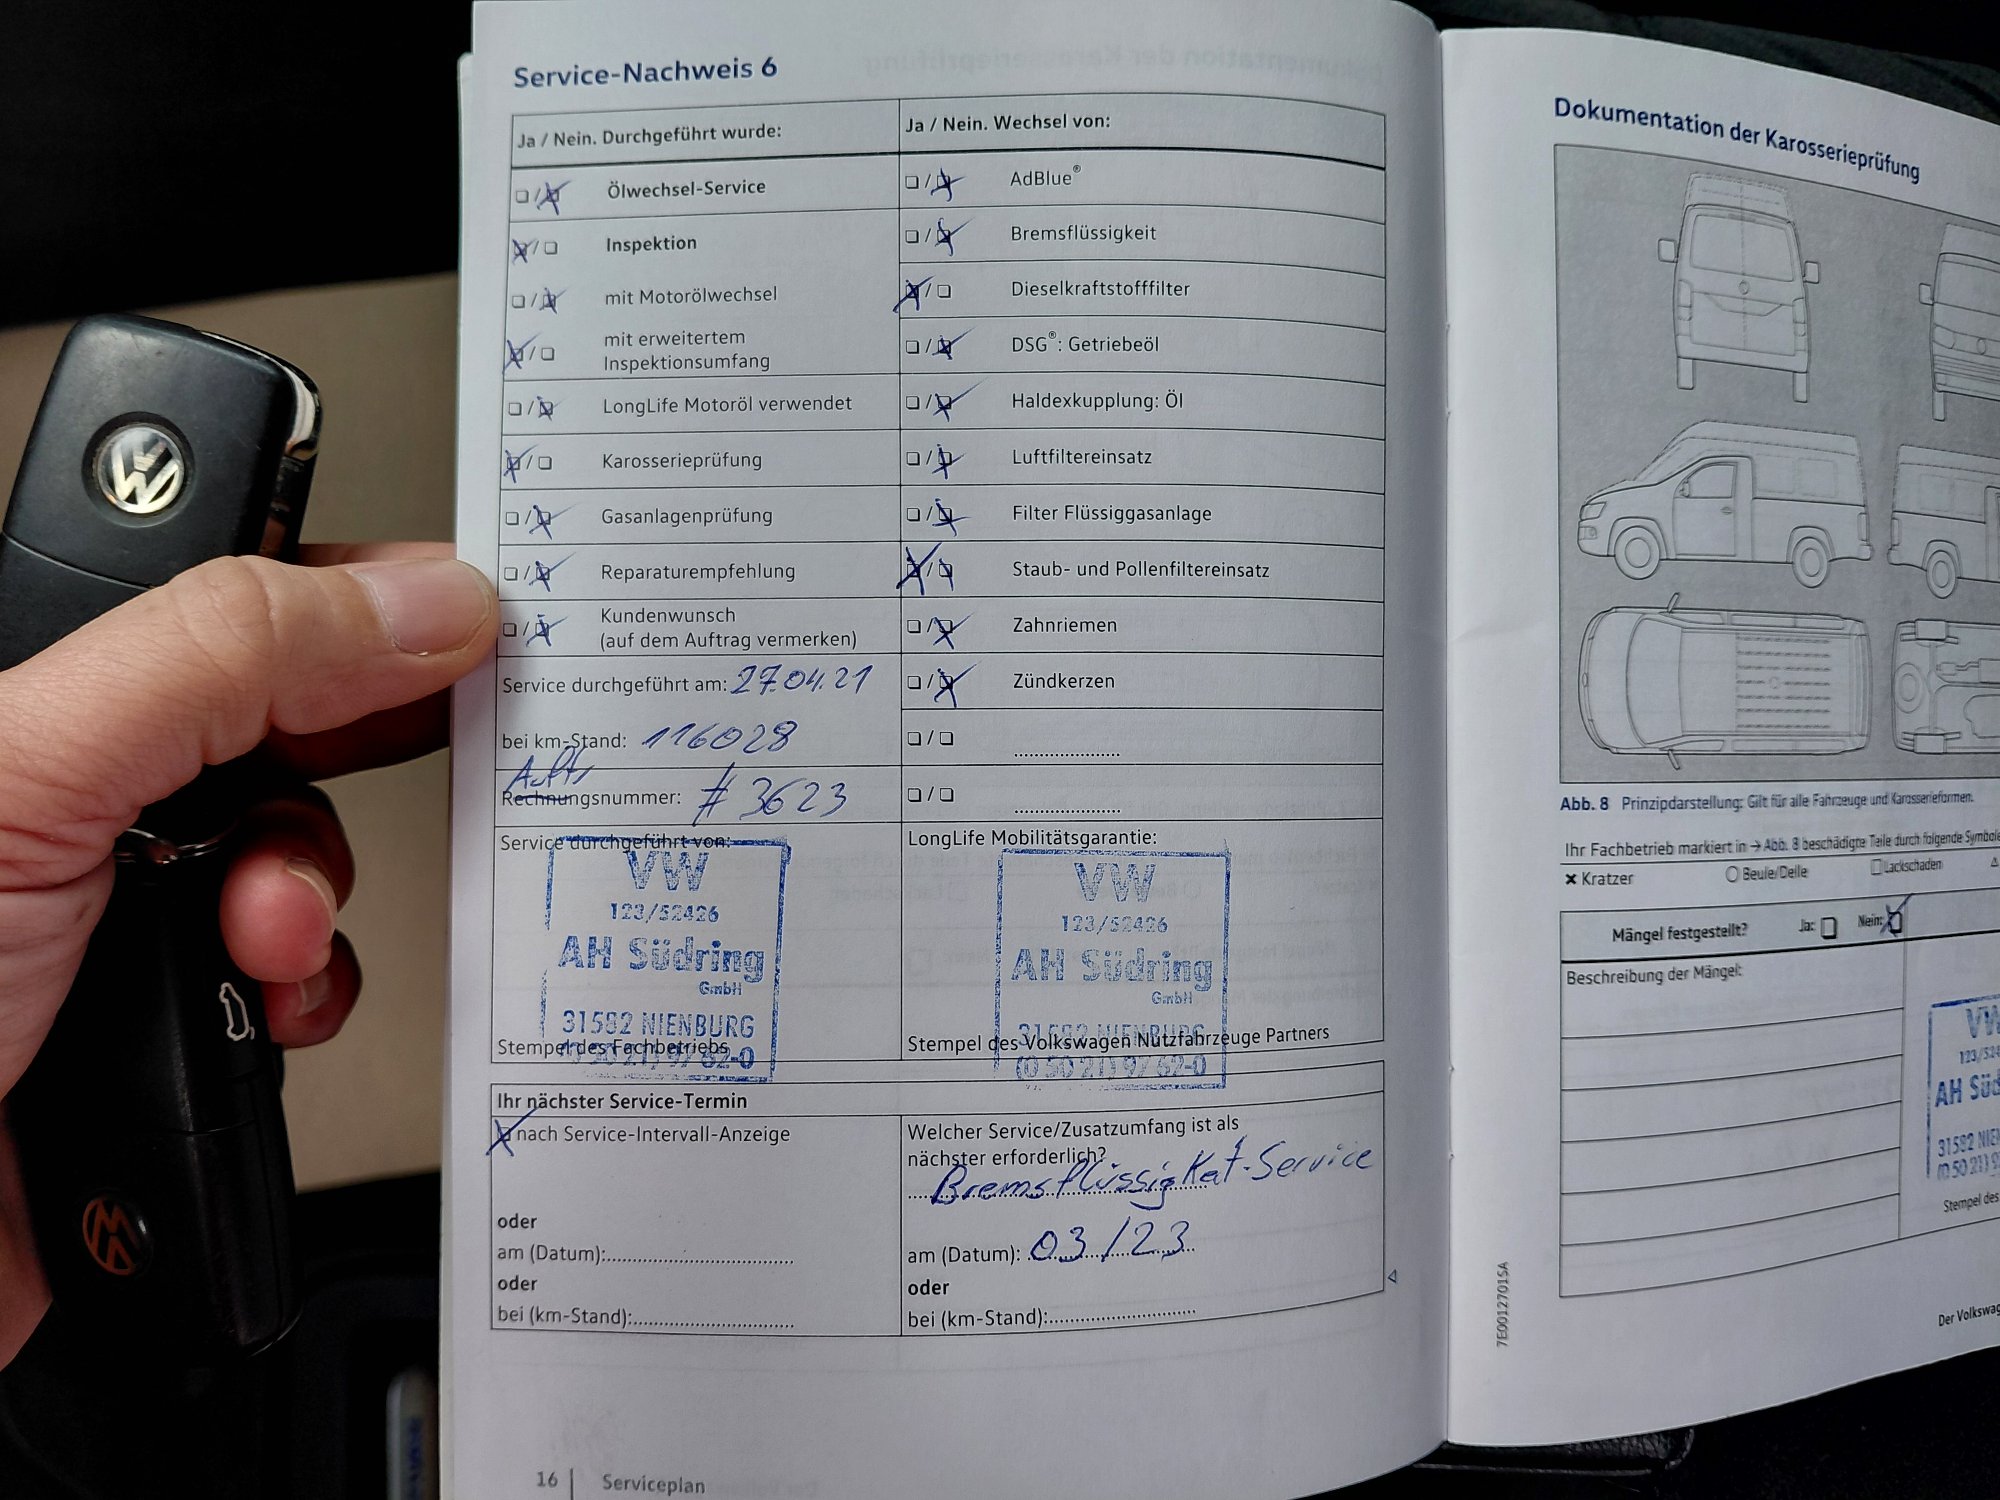 Service-Nachweis 6
Ja / Nein. Durchgeführt wurde:
Ölwechsel-Service
Inspektion
mit Motorölwechsel
mit erweitertem
Inspektionsumfang
LongLife Motoröl verwendet
Karosserieprüfung
Gasanlagenprüfung
Reparaturempfehlung
Kundenwunsch
(auf dem Auftrag vermerken)
Service durchgeführt am: 27.04.21
bei km-Stand: 116028
Auftr
Rechnungsnummer: # 3623
Service durchgeführt von:
VW
123/52426
AH Südring
GmbH
31582 NIENBURG
(0 50 21) 97 62-0
Stempel des Fachbetriebs
Ja / Nein. Wechsel von:
AdBlue®
Bremsflüssigkeit
Dieselkraftstofffilter
DSG®: Getriebeöl
Haldexkupplung: Öl
Luftfiltereinsatz
Filter Flüssiggasanlage
Staub- und Pollenfiltereinsatz
Zahnriemen
Zündkerzen
LongLife Mobilitätsgarantie:
VW
123/52426
AH Südring
GmbH
31582 NIENBURG
(0 50 21) 97 62-0
Stempel des Volkswagen Nutzfahrzeuge Partners
Ihr nächster Service-Termin
nach Service-Intervall-Anzeige
oder
am (Datum):
oder
bei (km-Stand):
Welcher Service/Zusatzumfang ist als
nächster erforderlich?
Bremsflüssigkeit-Service
am (Datum): 03/23
oder
bei (km-Stand):
16 | Serviceplan
Dokumentation der Karosserieprüfung
Abb. 8 Prinzipdarstellung: Gilt für alle Fahrzeuge und Karosserieformen.
Ihr Fachbetrieb markiert in → Abb. 8 beschädigte Teile durch folgende Symbole
× Kratzer ○ Beule/Delle Lackschaden
Mängel festgestellt? Ja: Nein:
Beschreibung der Mängel:
VW
123/524
AH Süd
31582 NIE
(0 50 21) 9
Stempel des
7E0012701SA
Der Volkswag